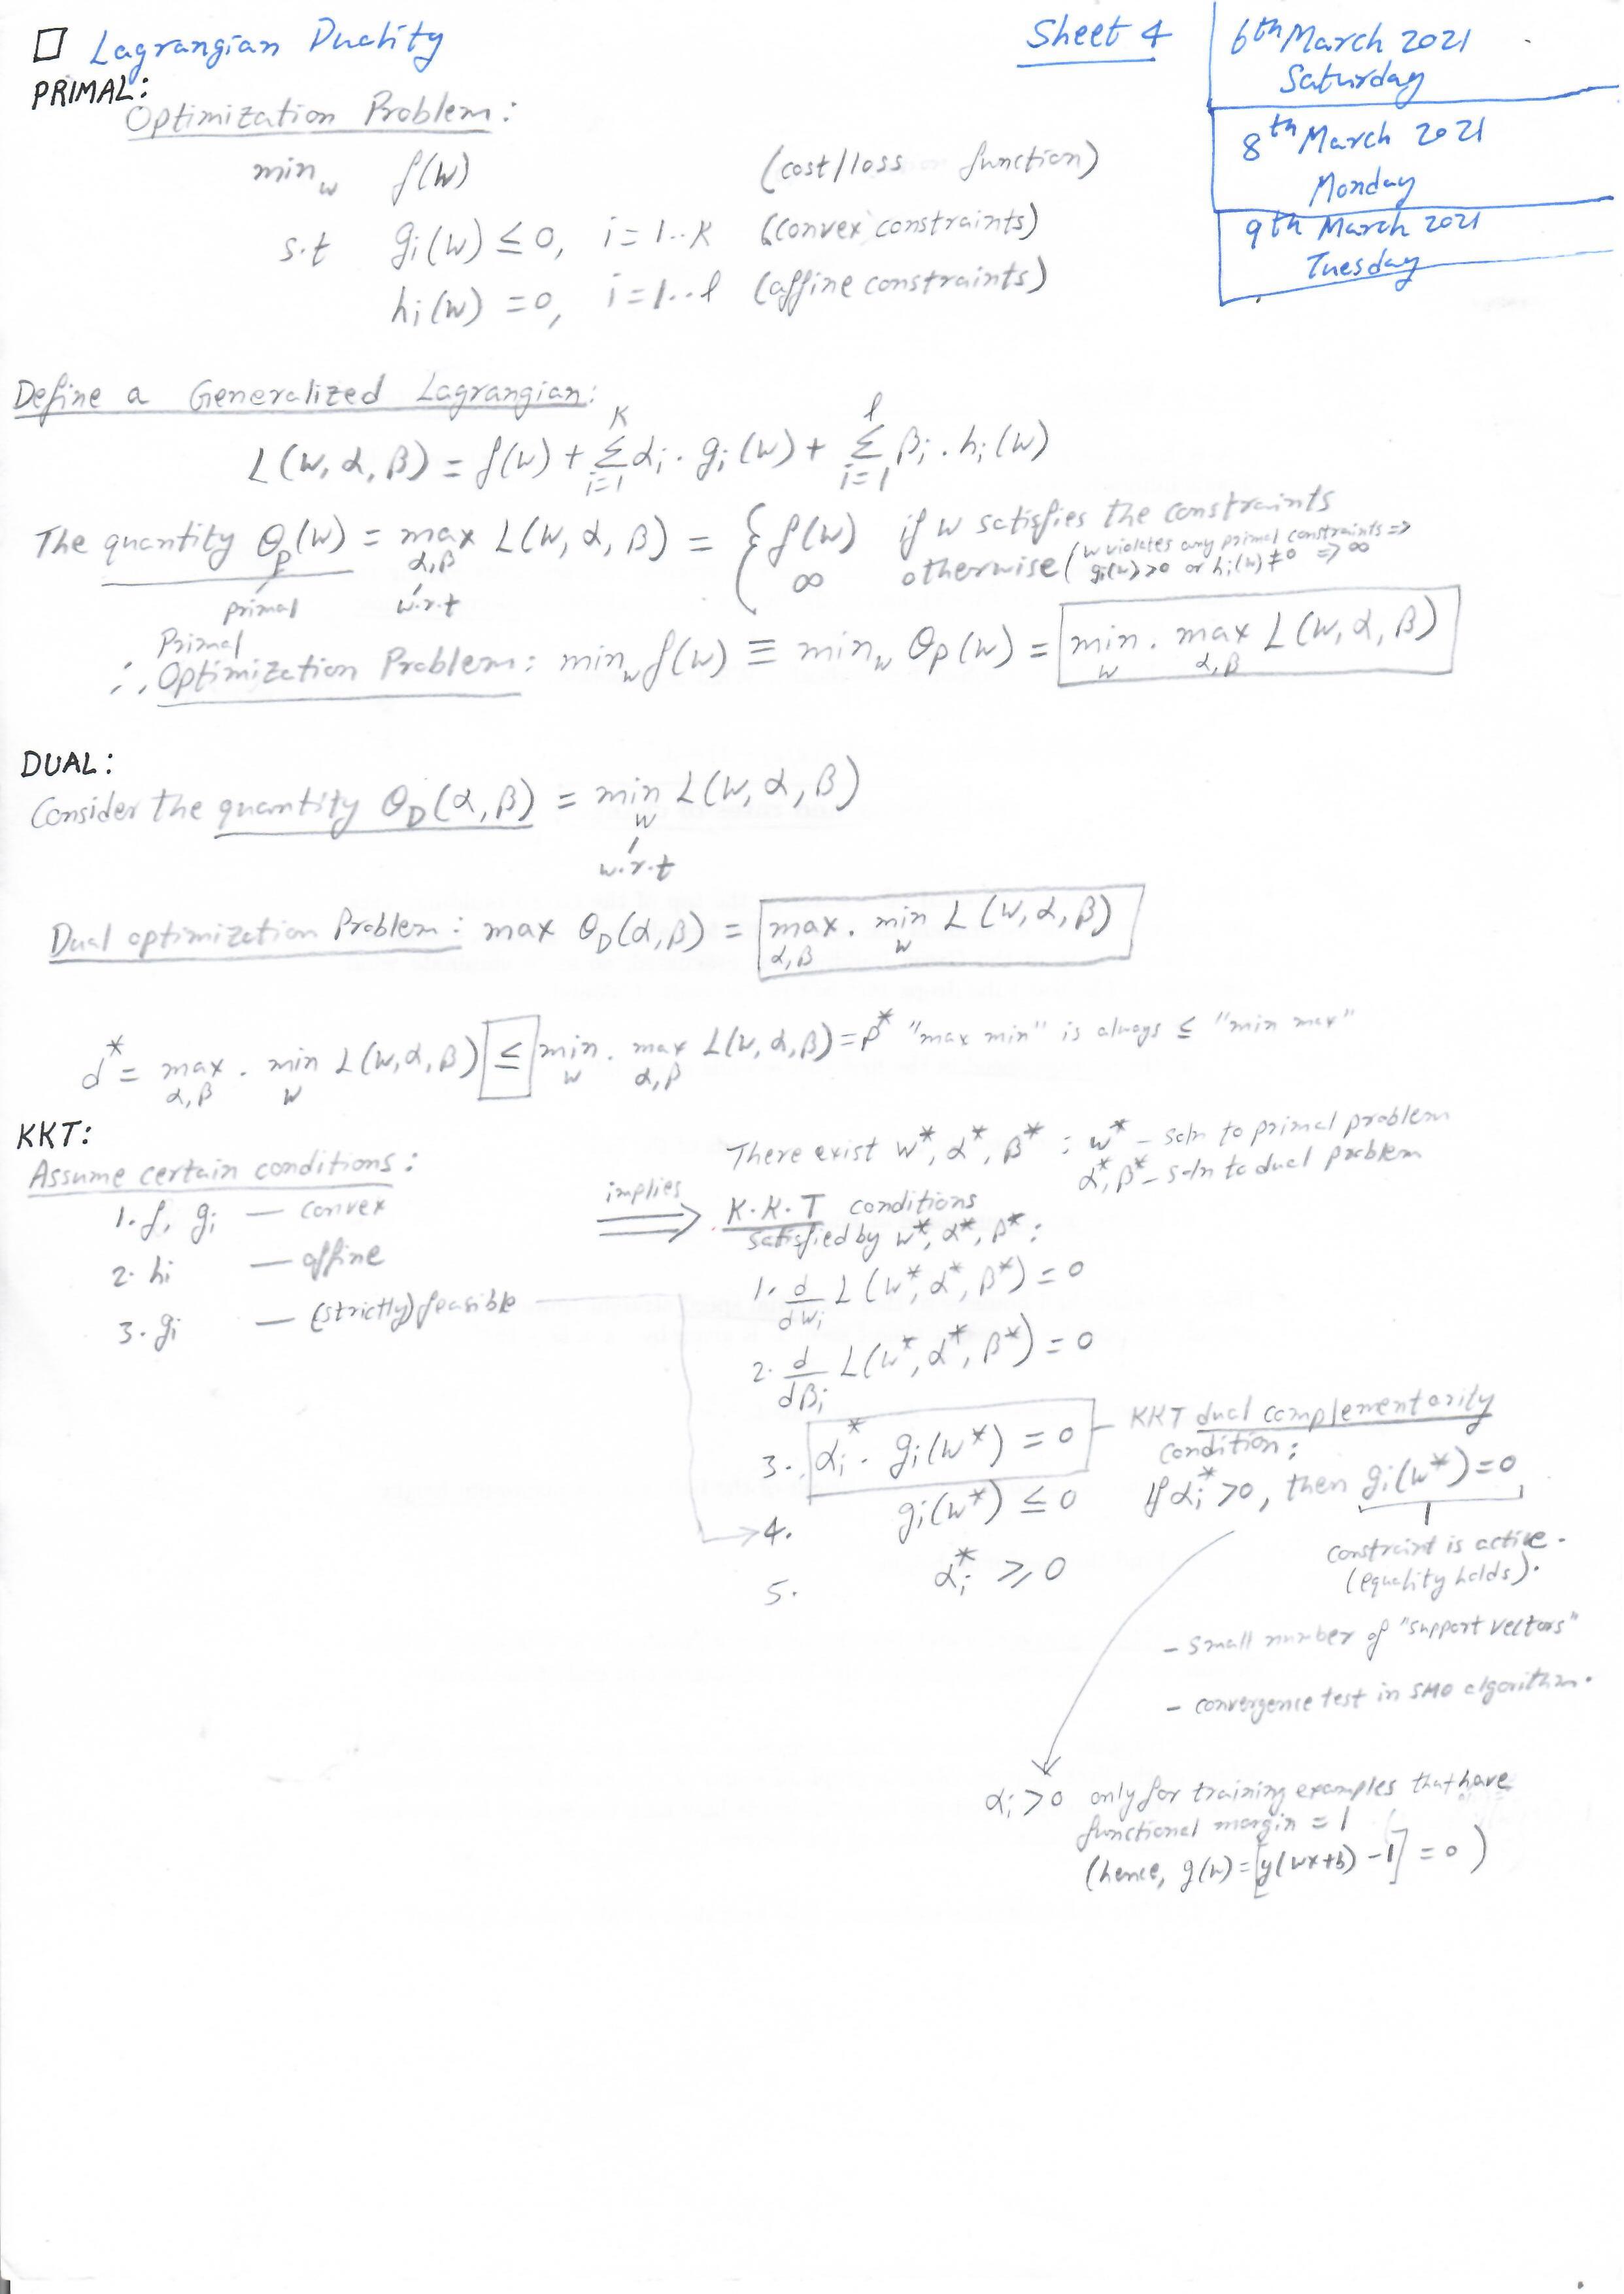 Lagrangian Duality
Sheet 4
6th March 2021
Saturday
8th March 2021
Monday
9th March 2021
Tuesday
PRIMAL:
Optimization Problem:
min_w f(w) (cost/loss function)
s.t g_i(w) ≤ 0, i=1..K (convex constraints)
h_i(w) = 0, i=1..l (affine constraints)
Define a Generalized Lagrangian:
L(w, α, β) = f(w) + Σ_{i=1}^{K} α_i . g_i(w) + Σ_{i=1}^{l} β_i . h_i(w)
The quantity θ_p(w) = max_{α,β} L(w, α, β) = { f(w) if w satisfies the constraints
∞ otherwise (w violates any primal constraints =>
g_i(w)>0 or h_i(w)≠0 => ∞
primal w.r.t
Primal
∴ Optimization Problem: min_w f(w) ≡ min_w θ_P(w) = min_w . max_{α,β} L(w, α, β)
DUAL:
Consider the quantity θ_D(α, β) = min_w L(w, α, β)
w.r.t
Dual optimization Problem: max θ_D(α,β) = max_{α,β} . min_w L(w, α, β)
d* = max_{α,β} . min_w L(w,α,β) ≤ min_w . max_{α,β} L(w, α, β) = p* "max min" is always ≤ "min max"
KKT:
Assume certain conditions:
1. f, g_i — convex
2. hi — affine
3. gi — (strictly) feasible
implies
There exist w*, α*, β* : w* – soln to primal problem
α*, β* – soln to dual problem
K.K.T conditions
satisfied by w*, α*, β*:
1. d/dw_i L(w*, α*, β*) = 0
2. d/dβ_i L(w*, α*, β*) = 0
3. α_i* . g_i(w*) = 0
4. g_i(w*) ≤ 0
5. α_i* ≥ 0
KKT dual complementarity
condition:
If α_i* >0, then g_i(w*) = 0
constraint is active.
(equality holds).
- small number of "support vectors"
- convergence test in SMO algorithm.
α_i >0 only for training examples that have
functional margin = 1
(hence, g(w) = [y(wx+b) -1] = 0)